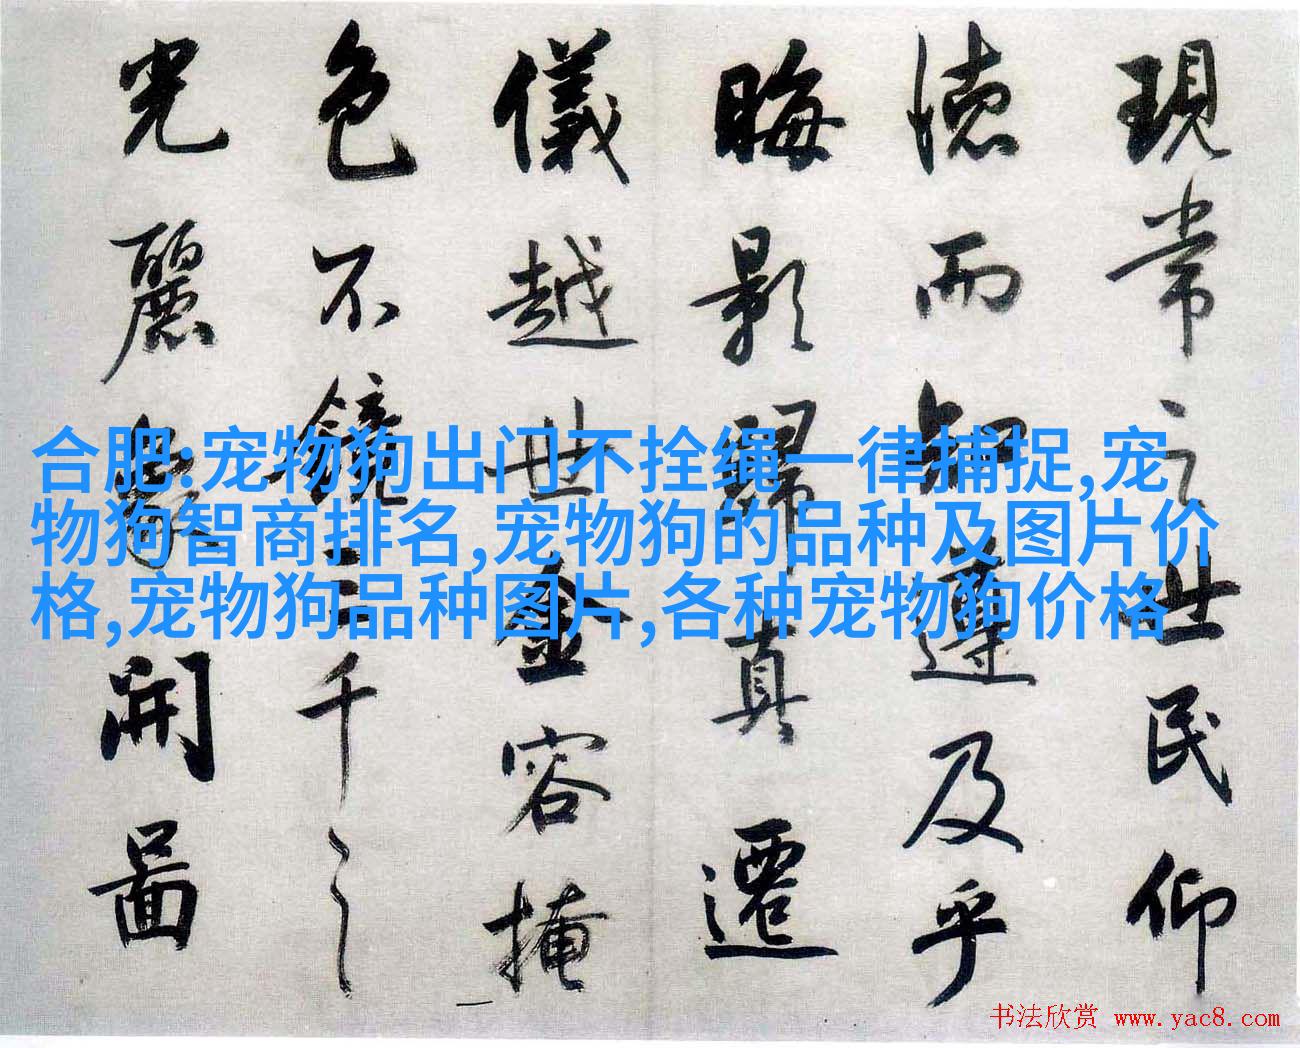 現常之世民仰
德而知遵及乎
晦影歸真遷
儀越世金容掩
色不鏡三千之
光麗象開圖
合肥:宠物狗出门不拴绳一律捕捉,宠
物狗智商排名,宠物狗的品种及图片价
格,宠物狗品种图片,各种宠物狗价格
书法欣赏 www.yac8.com